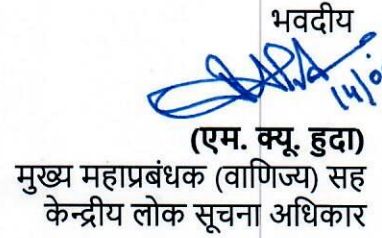 भवदीय
14/0
(एम. क्यू. हुदा)
मुख्य महाप्रबंधक (वाणिज्य) सह
केन्द्रीय लोक सूचना अधिकार